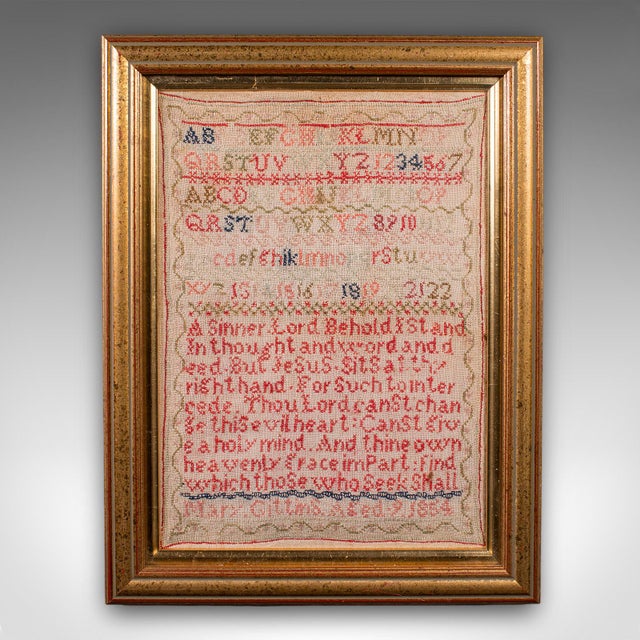 AB EFGH KLMN
QRSTUV YZ1234567
ABCD GHIJ OP
QRSTUVWXYZ8910
cdefghiklmnopqrstuvw
xyz 151 1816 1819 2122
A Sinner Lord Behold I Stand
In thought and word and d
eed. But JeSuS. SitS at thy
right hand. For Such to inter
cede. Thou Lord canSt chan
ge thiS evil heart: CanSt give
e a holy mind. And thine own
heavenly grace imPart: find
which thoSe who Seek SHall
Mary GittinS aged 9 1884